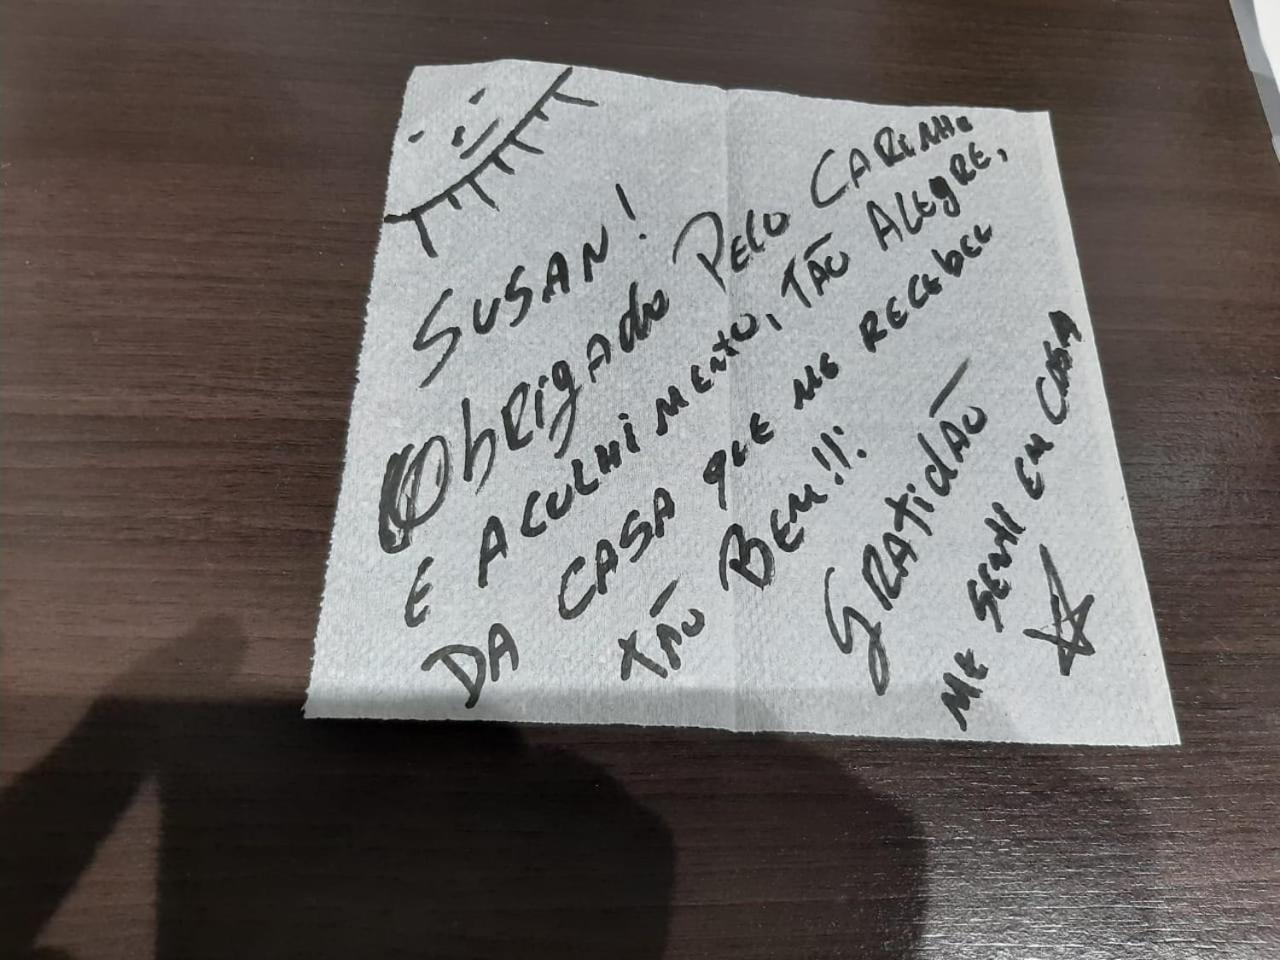 SUSAN!
ObRigAdo PELO CARINHO
E ACOLHIMENTO, TÃO ALEgRE,
DA CASA qUE ME RECEbEU
TÃO BEM!!!
gRATidÃO
ME SENTI EM CASA